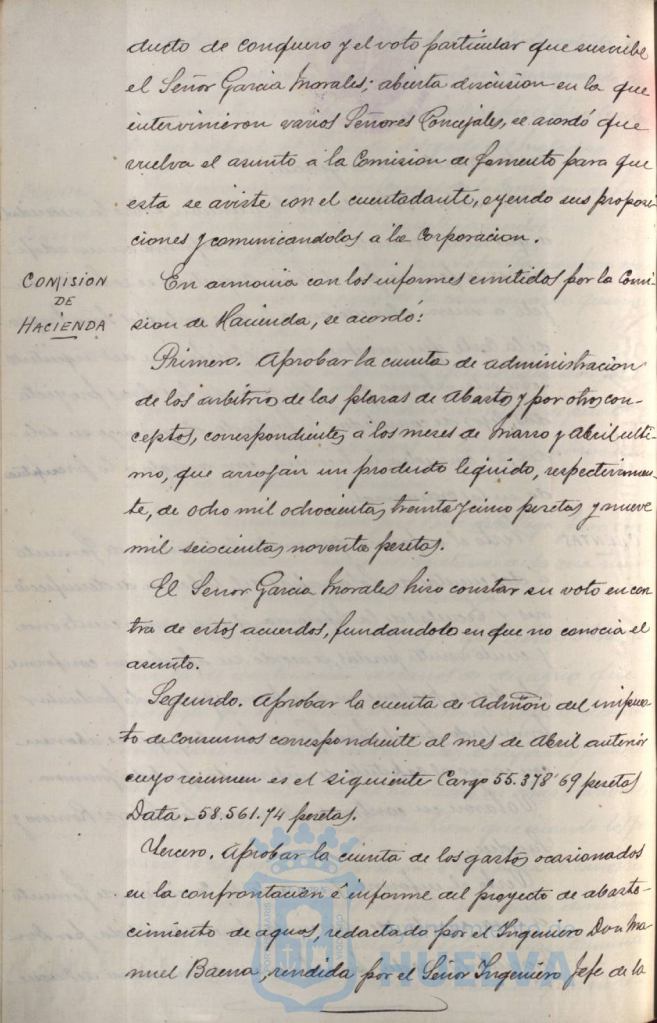 ducto de conquero y el voto particular que suscribe
el Señor Garcia Morales; abierta discusion en la que
intervinieron varios Señores Concejales, se acordó que
vuelva el asunto á la Comision de fomento para que
esta se aviste con el cuentadante, oyendo sus proposi-
ciones y comunicandolas a la Corporacion.
COMISION
DE
HACIENDA
En armonia con los informes emitidos por la Comi-
sion de Hacienda, se acordó:
Primero. Aprobar la cuenta de administracion
de los arbitrios de las plazas de Abastos y por otros con-
ceptos, correspondientes á los meses de Marzo y Abril ulti-
mo, que arrojan un producto liquido, respectivamen-
te, de ocho mil ochocientas treinta y cinco pesetas y nueve
mil seiscientas noventa pesetas.
El Señor Garcia Morales hizo constar su voto en con
tra de estos acuerdos, fundandolo en que no conocia el
asunto.
Segundo. Aprobar la cuenta de Admon del impues-
to de Consumos correspondiente al mes de Abril anterior
cuyo resumen es el siguiente Cargo 55.378'69 pesetas
Data - 58.561.74 pesetas.
Tercero. Aprobar la cuenta de los gastos ocasionados
en la confrontacion é informe del proyecto de abaste-
cimiento de aguas, redactado por el Ingeniero Don Ma-
nuel Baena, rendida por el Señor Ingeniero Jefe de la
Ayuntamiento de
HUELVA